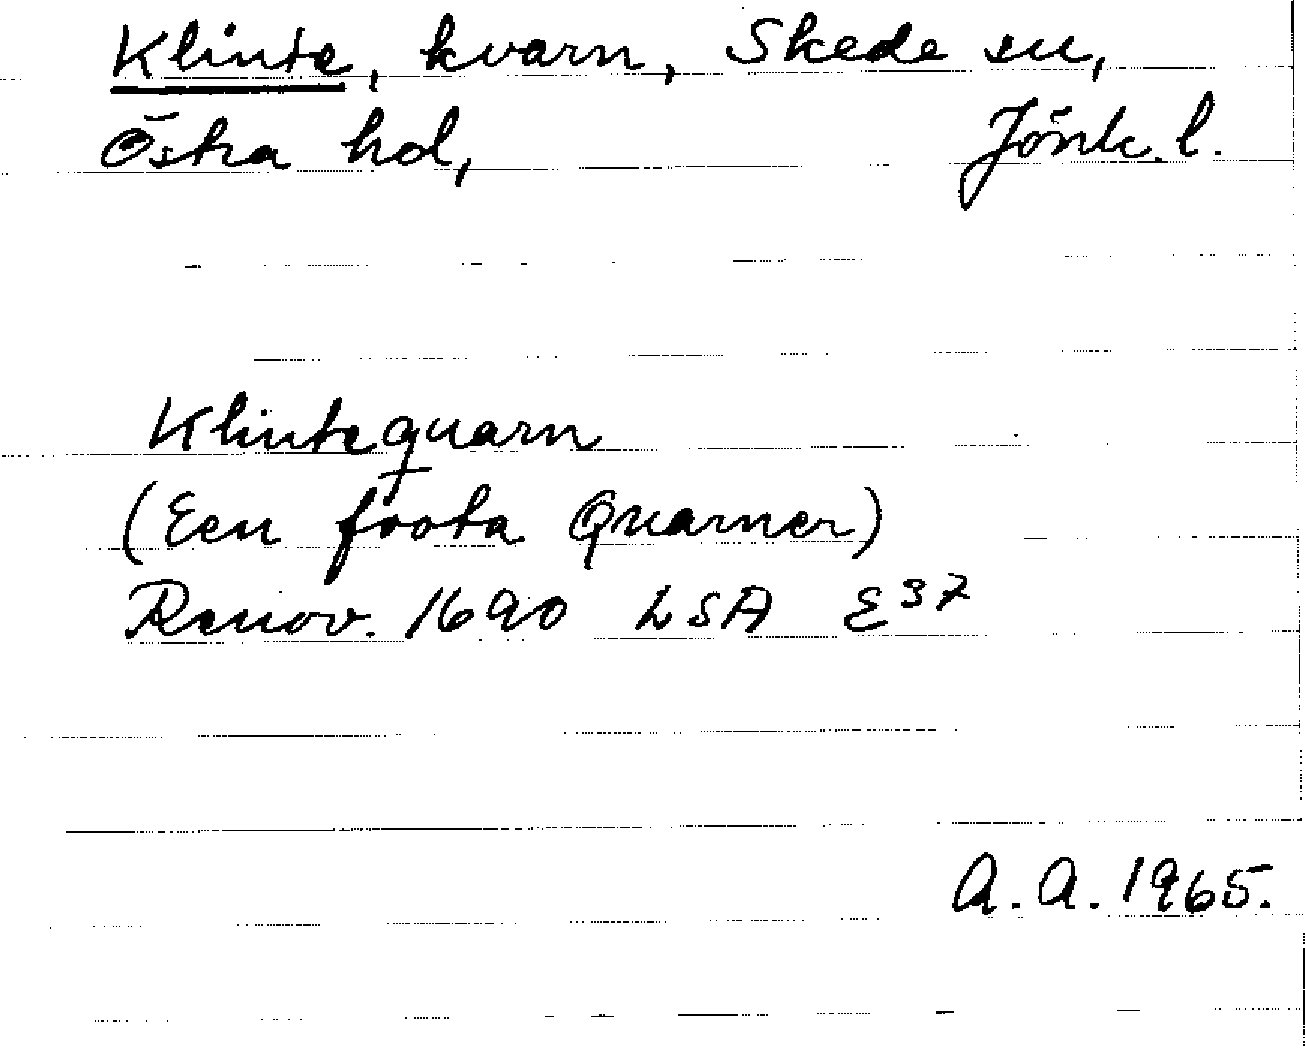 Klinte, kvarn, Skede sn,
Östra hd, Jönk. l.
Klintequarn
(Een foota Quarner)
Renov. 1690 LSA E 37
A. A. 1965.